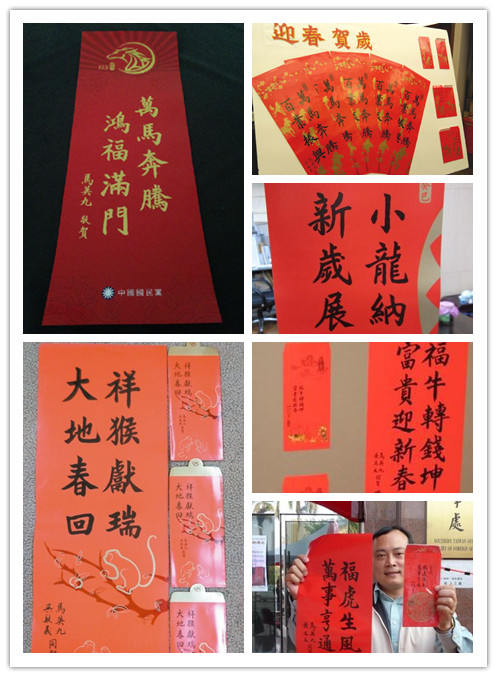 萬馬奔騰
鴻福滿門
馬英九 敬賀
中國國民黨
迎春賀歲
萬馬奔騰
百業振興
小龍納
新歲展
祥猴獻瑞
大地春回
馬英九
吳敦義
祥猴獻瑞
大地春回
祥猴獻瑞
大地春回
祥猴獻瑞
大地春回
福牛轉錢坤
富貴迎新春
馬英九
福虎生風
萬事亨通
馬英九